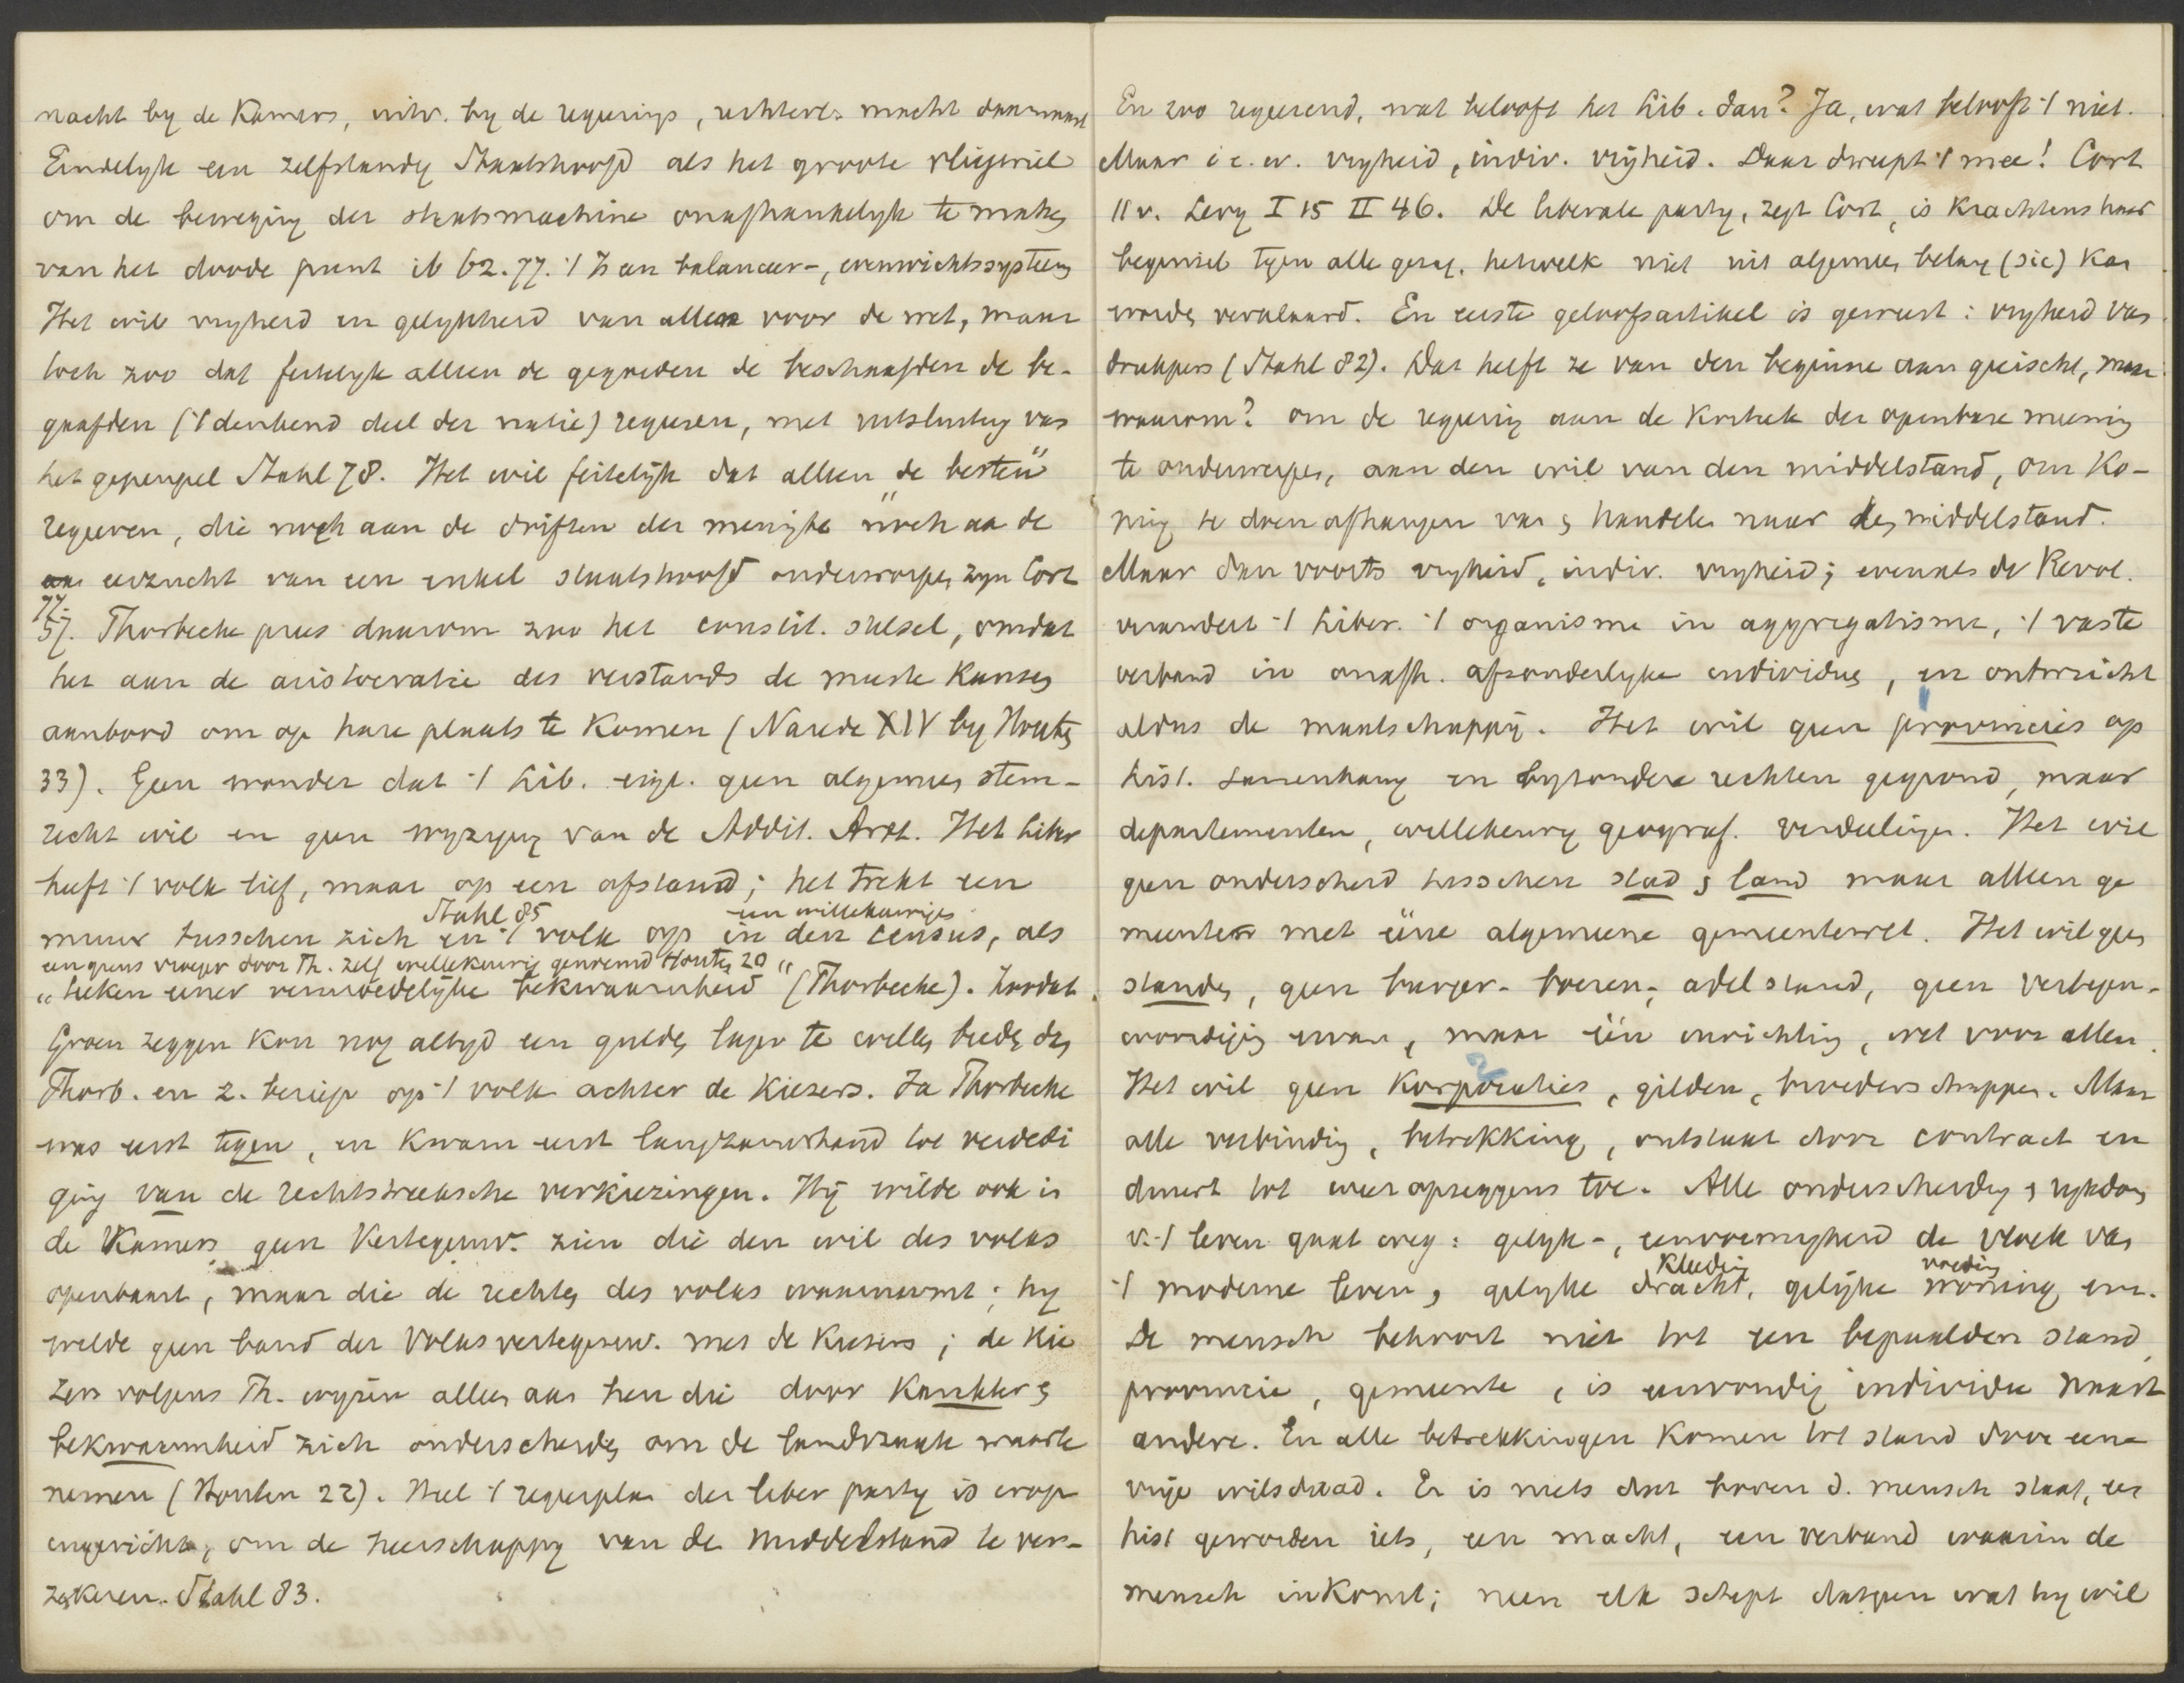 macht by de Kamers, uitv. by de regerings, rechterl. macht daarnaast
Eindelyk een zelfstandig Staatshoofd als het groote vliegwiel
om de beweging der staatsmachine onafhankelyk te maken
van het doode punt ib 62.77. 't Is een balanceer-, evenwichtssysteem
Het wil vryheid en gelykheid van allen voor de wet, maar
toch zoo dat feitelyk alleen de gegoeden de beschaafden de be-
gaafden ('t denkend deel der natie) regeeren, met uitsluiting van
het gepeupel Stahl 78. Het wil feitelijk dat alleen "de besten"
regeeren, die noch aan de driften der menigte noch aa de
eerzucht van een enkel staatshoofd onderworpen zyn Cort
77.
57. Thorbecke prees daarom zoo het constit. stelsel, omdat
het aan de aristocratie des verstands de meeste kansen
aanbood om op hare plaats te komen (Narede XIV by Houten
33). Geen wonder dat 't Lib. eigl. geen algemeen stem-
recht wil en geen wyziging van de Addit. Artt. Het liber
heeft 't volk lief, maar op een afstand; het trekt een
Stahl 85 een willekeurige
muur tusschen zich en 't volk op in den census, als
een grens vroeger door Th. zelf willekeurig genoemd Houten 20
"teeken eener vermoedelijke bekwaamheid" (Thorbecke). Zoodat
Groen zeggen kon nog altyd een gulden lager te willen bieden dan
Thorb. en z. beriep op 't volk achter de Kiezers. Ja Thorbecke
was eerst tegen, en kwam eerst langzamerhand tot verdedi
ging van de rechtstreeksche verkiezingen. Hij wilde ook in
de Kamers geen Vertegenw. zien die den wil des volks
openbaart, maar die de rechten des volks waarneemt; hy
wilde geen band der Volksvertegenw. met de Kiezers; de Kie
zers volgens Th. wyzen alleen aan hen die door Karakter &
bekwaamheid zich onderscheiden om de landszaak waar te
nemen (Houten 22). Heel 't regeerplan der liber party is erop
ingericht, om de heerschappy van de middelstand te ver-
zekeren. Stahl 83.
En zoo regeerend, wat belooft het Lib. dan? Ja, wat belooft 't niet.
Maar i.e.w. vryheid, indiv. vrijheid. Daar dweept 't mee! Cort
11 v. Levy I 15 II 46. De liberale party, zegt Cort, is krachtens haar
beginsel tegen alle gezag, hetwelk niet uit algemeen belang (sic) kan
worden verklaard. En eerste geloofsartikel is geweest: vryheid van
drukpers (Stahl 82). Dat heeft ze van den beginne aan geëischt, maar
waarom? om de regeering aan de Kritiek der openbare meening
te onderwerpen, aan den wil van den middelstand, om Ko-
ning te doen afhangen van & handelen naar den middelstand.
Maar dan voorts vryheid, indiv. vryheid; evenals de Revol.
verandert 't Liber. 't organisme in aggregatisme, 't vaste
verband in onafh. afzonderlyke individuen, en ontwricht
aldus de maatschappij. Het wil geen provincies op
hist. samenhang en byzondere rechten gegrond, maar
departementen, willekeurig geograf. verdeelingen. Het wil
geen onderscheid tusschen stad & land maar alleen ge
meenten met ééne algemeene gemeentewet. Het wil geen
standen, geen burger- boeren-, adelstand, geen vertegen-
woordiging ervan, maar één inrichting, wet voor allen.
Het wil geen Korporaties, gilden, broederschappen. Maar
alle verbinding, betrekking, ontstaat door contract en
duurt tot weer opzeggens toe. Alle onderscheiding & rykdom
v. 't leven gaat weg: gelyk-, eenvormigheid de vloek van
Kleeding voeding
't moderne leven, gelyke dracht, gelijke woning enz.
De mensch behoort niet tot een bepaalden stand,
provincie, gemeente, is eenvoudig individu naast
andere. En alle betrekkingen komen tot stand door eene
vrije wilsdaad. Er is niets dat boven d. mensch staat, een
hist geworden iets, een macht, een verband waarin de
mensch inkomt; neen elk schept datgeen wat hy wil